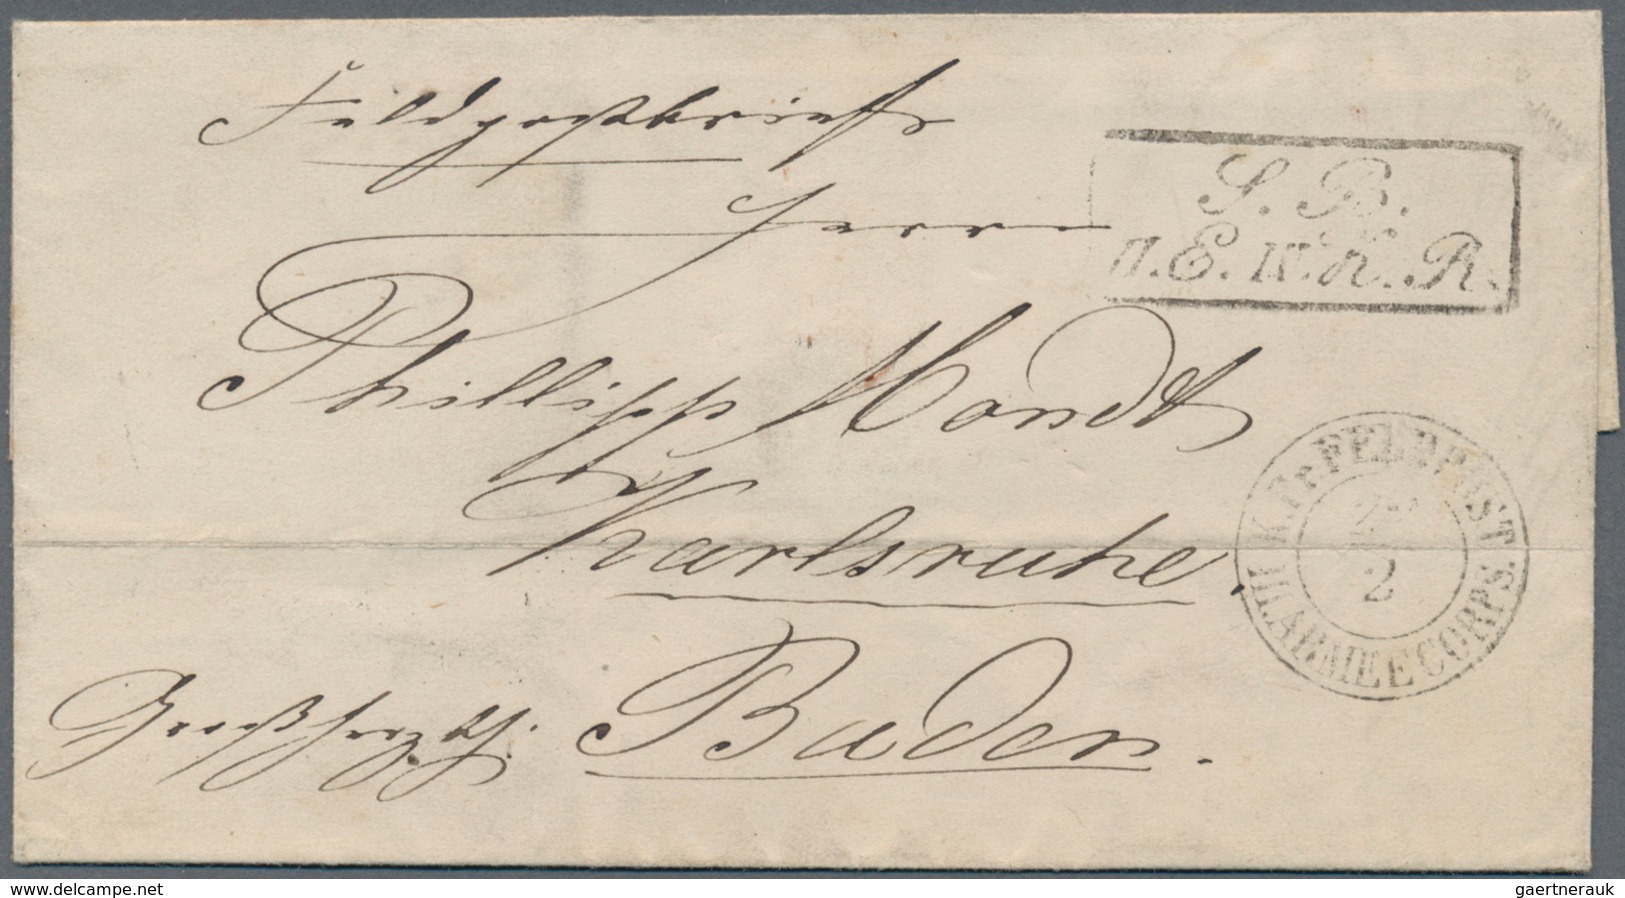 Feldpostbrief
Herrn
Phillipp Mondt
Karlsruhe.
Großherzgth. Baden.
S. B.
II. E. W. K. R.
K. Pr. FELDPOST
2
III. ARMEECORPS.
www.delcampe.net
gaertnerauk